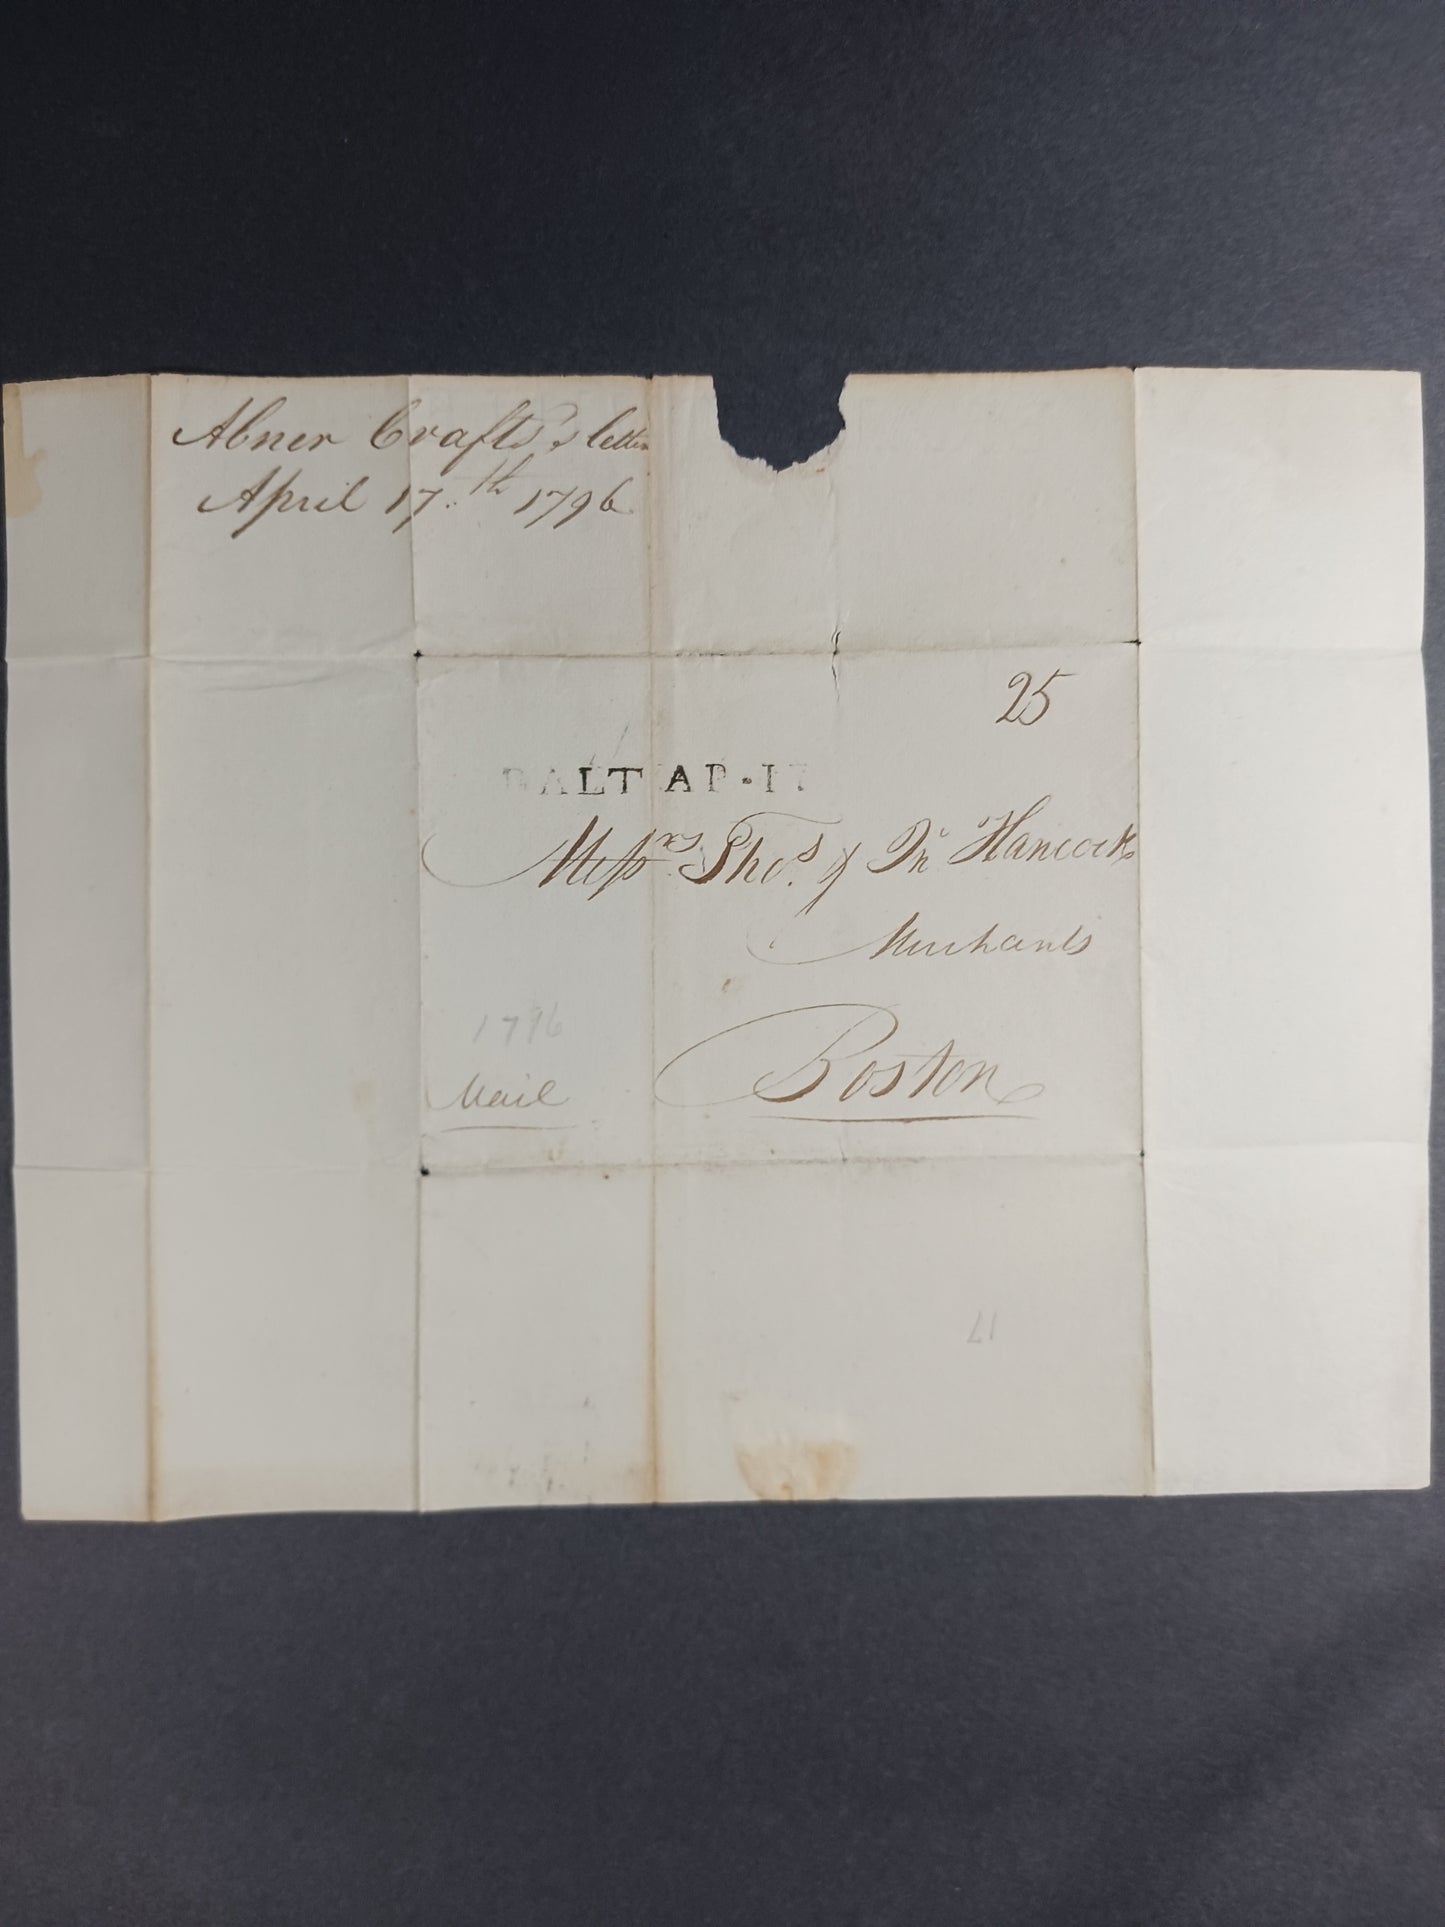 Abner Crafts's letter
April 17.th 1796
25
BALT AP·17
Messrs Thos. & Jno Hancock
Merchants
1796
Boston
Mail
17